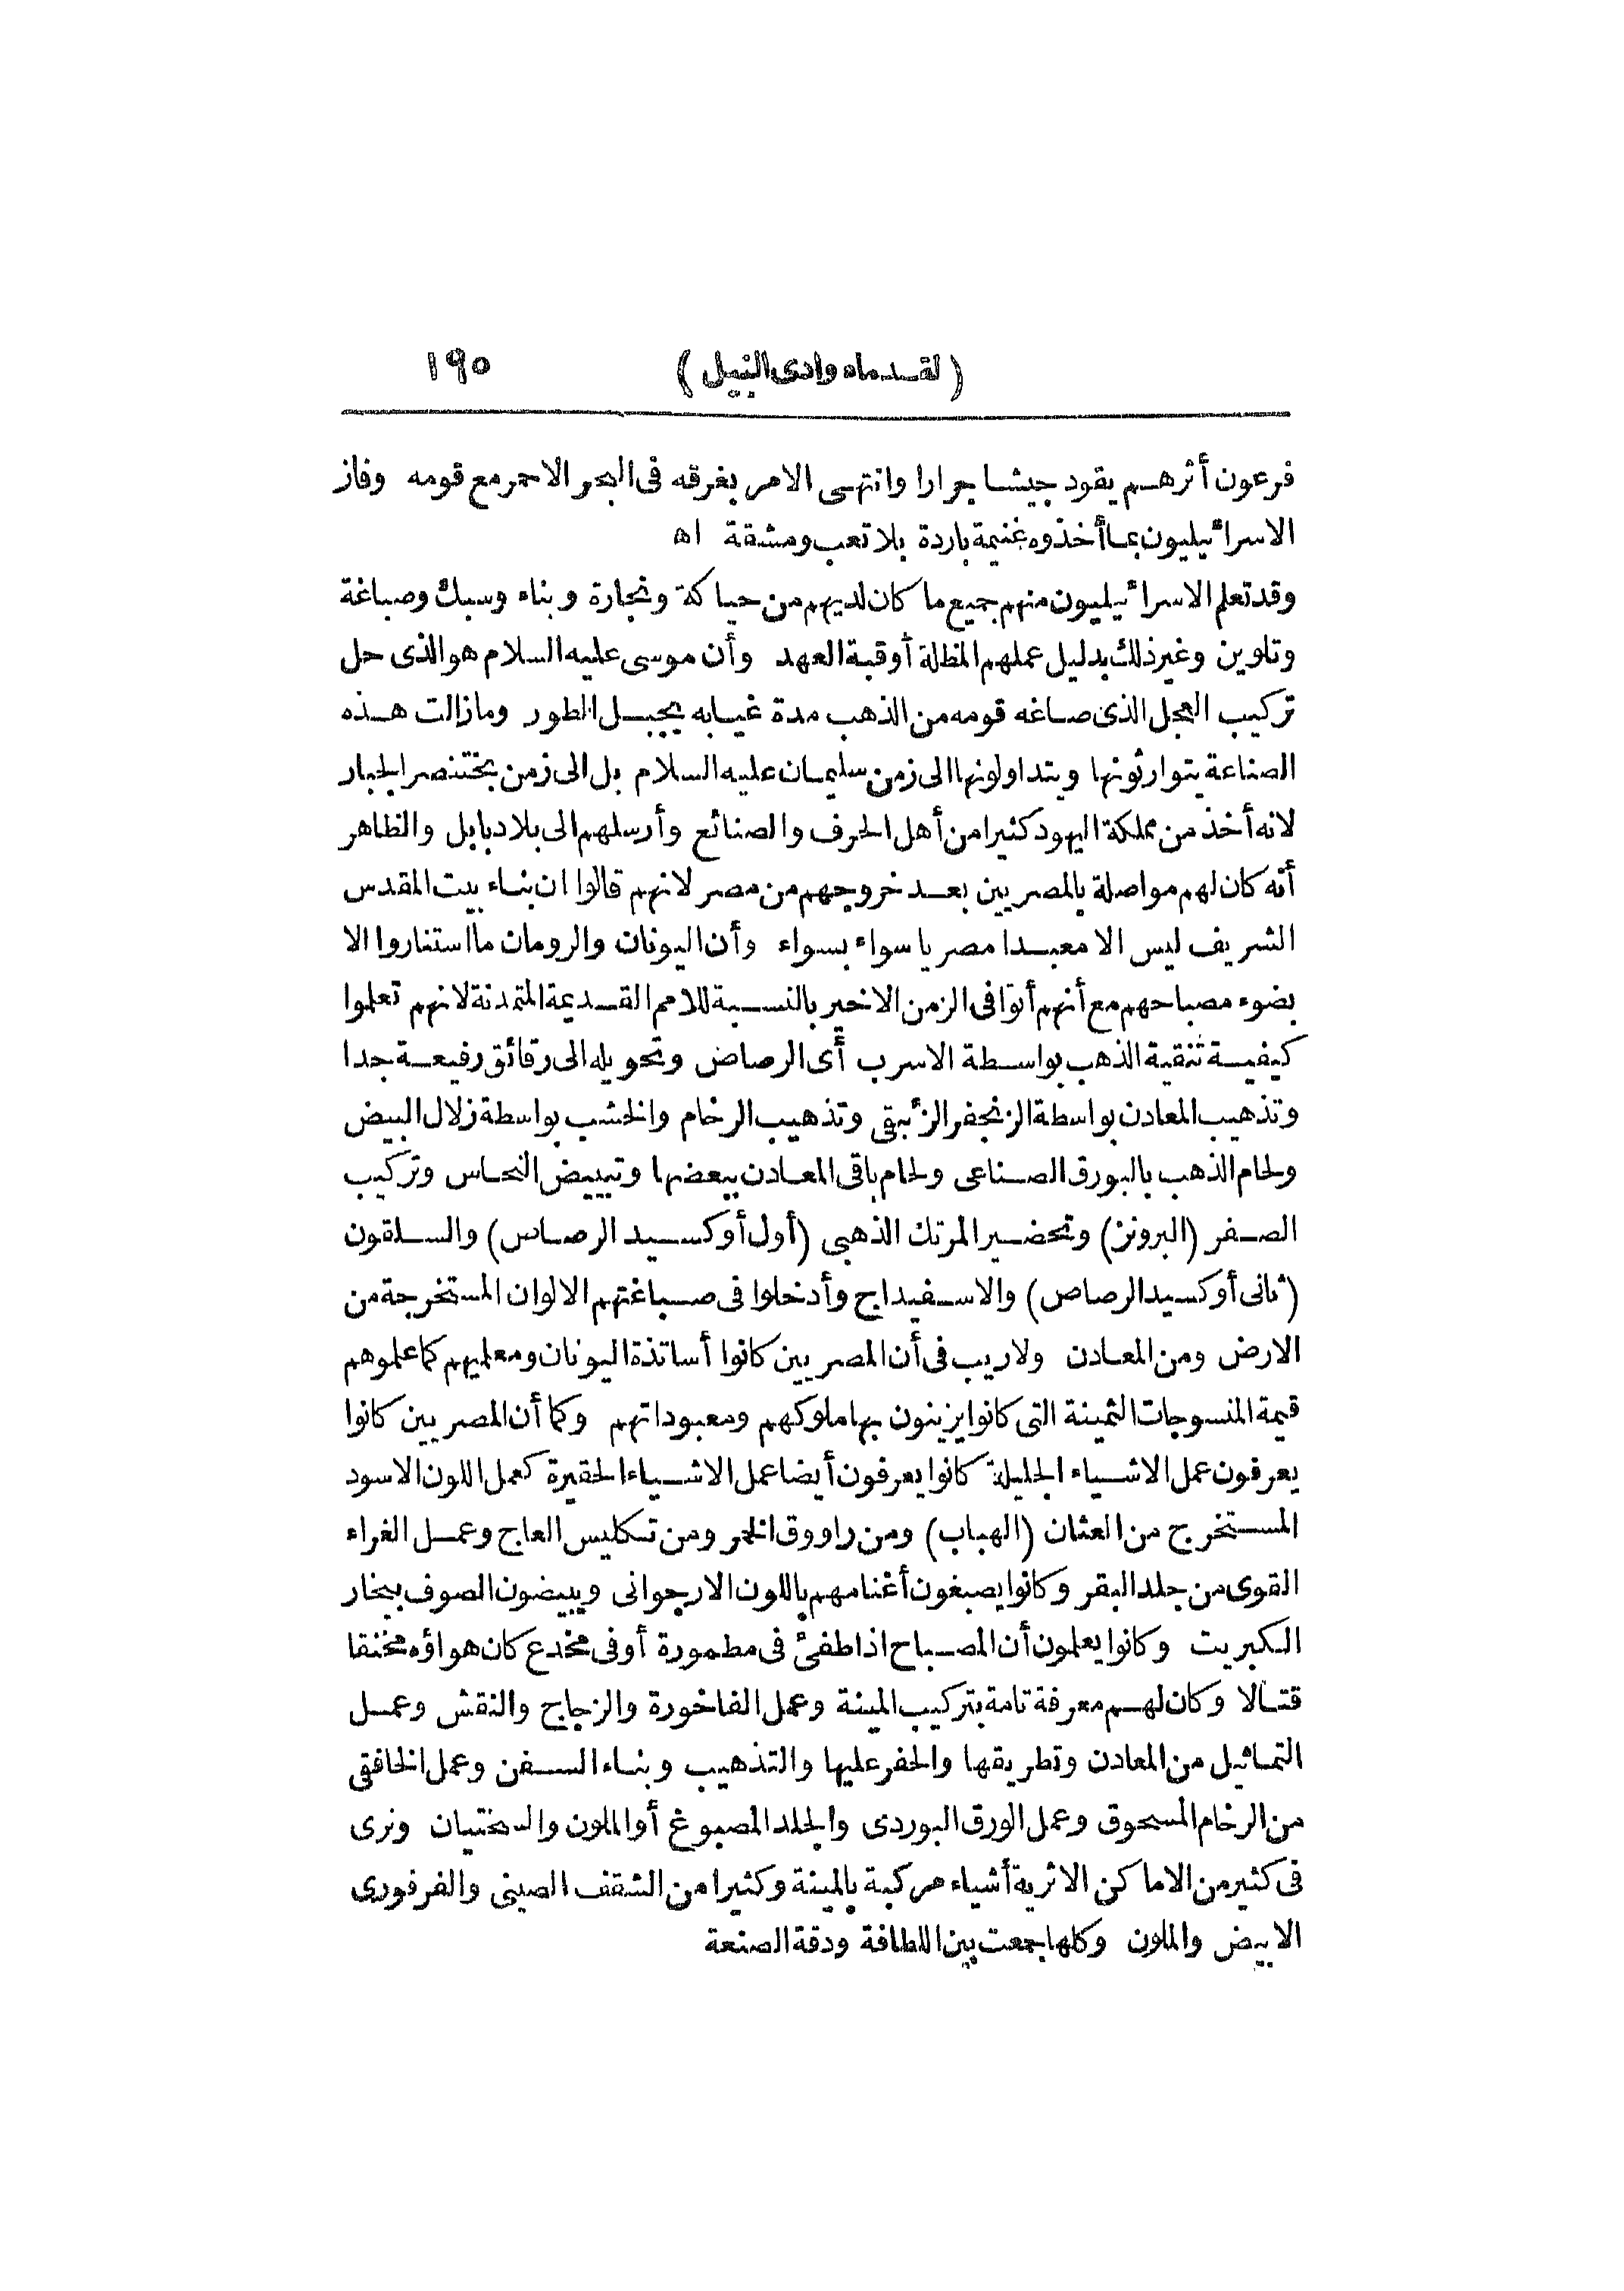 (لقدماء وادى النيل) ١٩٥
فرعون أثرهم يقود جيشا جرارا وانتهى الامر بغرقه فى البحر الاحمر مع قومه وفاز
الاسرائيليون بما أخذوه غنيمة باردة بلا تعب ومشقة اه
وقد تعلم الاسرائيليون منهم جميع ما كان لديهم من حياكة ونجارة وبناء وسبك وصباغة
وتلوين وغير ذلك بدليل عملهم المظلة أو قبة العهد وأن موسى عليه السلام هو الذى حل
تركيب العجل الذى صاغه قومه من الذهب مدة غيابه بجبل الطور ومازالت هذه
الصناعة يتوارثونها ويتداولونها الى زمن سليمان عليه السلام بل الى زمن بختنصر الجبار
لانه أخذ من مملكة اليهود كثيرا من أهل الحرف والصنائع وأرسلهم الى بلاد بابل والظاهر
أنه كان لهم مواصلة بالمصريين بعد خروجهم من مصر لانهم قالوا ان بناء بيت المقدس
الشريف ليس الا معبدا مصريا سواء بسواء وأن اليونان والرومان ما استناروا الا
بضوء مصباحهم مع أنهم أتوا فى الزمن الاخير بالنسبة للامم القديمة المتمدنة لانهم تعلموا
كيفية تنقية الذهب بواسطة الاسرب أى الرصاص وتحويله الى رقائق رفيعة جدا
وتذهيب المعادن بواسطة الزنجفر الزئبقى وتذهيب الرخام والخشب بواسطة زلال البيض
ولحام الذهب بالبورق الصناعى ولحام باقى المعادن ببعضها وتبييض النحاس وتركيب
الصفر (البرونز) وتحضير المرتك الذهبى (أول أوكسيد الرصاص) والسلقون
(ثانى أوكسيد الرصاص) والاسفيداج وأدخلوا فى صباغتهم الالوان المستخرجة من
الارض ومن المعادن ولاريب فى أن المصريين كانوا أساتذة اليونان ومعلميهم كما علموهم
قيمة المنسوجات الثمينة التى كانوا يزينون بها ملوكهم ومعبوداتهم وكما أن المصريين كانوا
يعرفون عمل الاشياء الجليلة كانوا يعرفون أيضا عمل الاشياء الحقيرة كعمل اللون الاسود
المستخرج من العثان (الهباب) ومن راووق الخمر ومن تكليس العاج وعمل الغراء
القوى من جلد البقر وكانوا يصبغون أغنامهم باللون الارجوانى ويبيضون الصوف ببخار
الكبريت وكانوا يعلمون أن المصباح اذا طفئ فى مطمورة أو فى مخدع كان هواؤه مختنقا
قتالا وكان لهم معرفة تامة بتركيب المينة وعمل الفاخورة والزجاج والنقش وعمل
التماثيل من المعادن وتطريقها والحفر عليها والتذهيب وبناء السفن وعمل الخافقى
من الرخام المسحوق وعمل الورق البوردى والجلد المصبوغ أو الملون والسختيان ونرى
فى كثير من الاماكن الاثرية أشياء مركبة بالمينة وكثيرا من الشقف الصينى والفرفورى
الابيض والملون وكلها جمعت بين اللطافة ودقة الصنعة